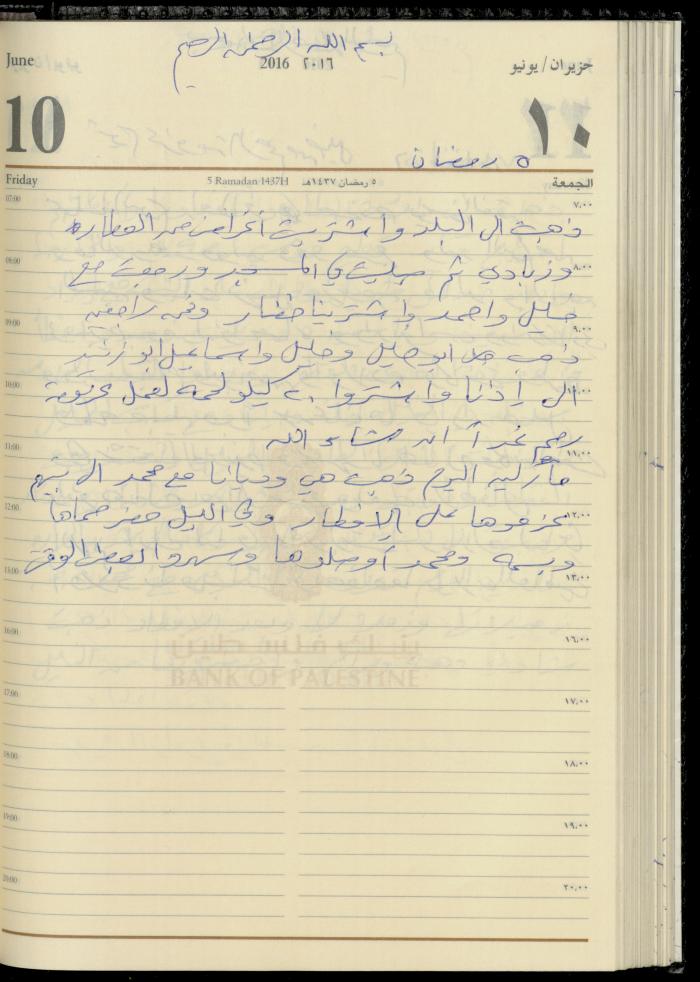 بسم الله الرحمن الرحيم
June 2016 ٢٠١٦ حزيران / يونيو
10 ١٠
٥ رمضان
Friday 5 Ramadan 1437H ٥ رمضان ١٤٣٧هـ الجمعة
07:00 ٧,٠٠
ذهبت الى البلد واشتريت أغراض من العطاره
08:00 ٨,٠٠
وزبادي ثم صليت في المسجد ورجعت مع
خليل واحمد واشترينا خضار ونحن راجعين
09:00 ٩,٠٠
ذهب ابو خليل وخليل واسماعيل ابو زنيد
10:00 ١٠,٠٠
الى إذنا واشتروا ٢٠ كيلو لحمه لعمل عزومة
غداً ان شاء الله
11:00 ١١,٠٠
اليوم ذهبت هي وديانا مع محمد الى بيتهم
12:00 ١٢,٠٠
عزموها على الإفطار وفي الليل حماها
وبسمه ومحمد أوصلوها وسهروا لبعض الوقت
13:00 ١٣,٠٠
16:00 ١٦,٠٠
بنك فلسطين
BANK OF PALESTINE
17:00 ١٧,٠٠
18:00 ١٨,٠٠
19:00 ١٩,٠٠
20:00 ٢٠,٠٠